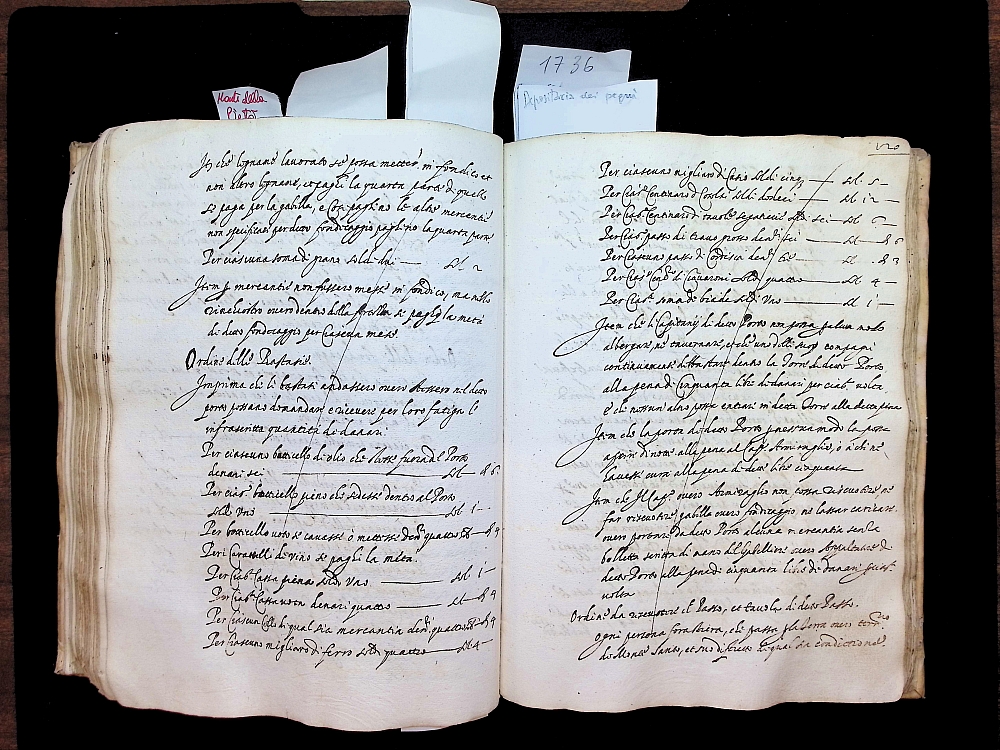 Monte della
Pietà
1736
Depositaria dei pegni
120
Itē che legname lavorato se possa metter' in fondico, et
non altro legname, et paghi la quarta parte di quello
se paga per la gabella, e così paghino le altre mercantie
non specificate per detto fondicaggio paghino la quarta parte
Per ciascuna soma di grano soldi doi — sol. 2
Item se mercantie non fussero messe in fondico, ma nello
overo dentro della se paghi la metà
di detto fondicaggio per ciascun mese.
Ordine delli Bastasi.
Imprima che li bastasi andassero overo stessero nel detto
porto possano domandare e ricevere per loro fatiga l'
infrascritta quantità di danari.
Per ciascuno botticello di olio che fuora del Porto
denari sei — sol. — d 6
Per ciasc.o botticello pieno che dentro al Porto
soldi uno — sol. 1 —
Per botticello voto se cavasse ò mettesse den. quattro sol. — d 4
Per i Caratelli di vino se paghi la metà.
Per ciasc.a Cassa piena soldo uno — sol. 1 —
Per ciasc.a Cassa vota denari quattro — sol. — d 4
Per ciascun Collo di qual sia mercantia den. quattro sol. — d 4
Per ciascuno migliaro di ferro soldi quattro — sol. 4 —
Per ciascuno migliaro di soldi cinq. — sol. 5 —
Per ciasc.o Centinaro di soldi dodeci — sol. 12 —
Per ciasc.o Centinaro di tavole soldi sei — sol. 6 —
Per ciasc.o passo di travo grosso den. sei — sol. — d 6
Per ciascuno passo di den. tre — sol. — d 3
Per ciasc.o soldi quattro — sol. 4 —
Per ciasc.a soma de biade soldi uno — sol. 1 —
Item che li Capitanij di detto Porto non possa per alcun modo
albergare, né et che uno delli suoi compagni
continuamente dentro la Torre di detto Porto
alla pena di Cinquanta libre di danari per ciasc.a volta
e che nessun altro possa entrare in detta Torre alla detta pena
Item che la porta di detto Porto per nessun modo la possa
aprire di notte alla pena al Cap.o Armiraglio, o à chi ne
havesse cura alla pena di dette libre cinquanta
Item che il Cap.o overo Armiraglio non possa riscuotere, né
far riscuotere gabella overo fondicaggio né lasser caricare,
overo portare da detto Porto alcuna mercantia senza
bolletta scritta di mano del Gabelliere overo di
detto Porto alla pena di cinquanta libre di danari
volta
Ordine da riscuotere il Passo, et tavola di detto Passo.
Ogni persona forastiera, che passa per la Terra overo terri.rio
di Monte Santo, et suo distretto de qual sia conditione.